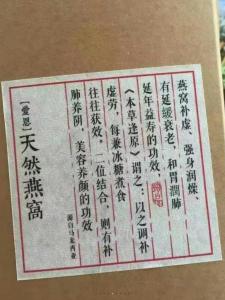 燕窝补虚、强身润燥、
有延緩衰老，和胃潤肺
延年益寿的功效，
《本草逢原》谓之：以之调补
虚劳，每兼冰糖煮食
往往获效。二位结合，则有补
肺养阴，美容养颜的功效
源自马来西亚
【爱恩】天然燕窝